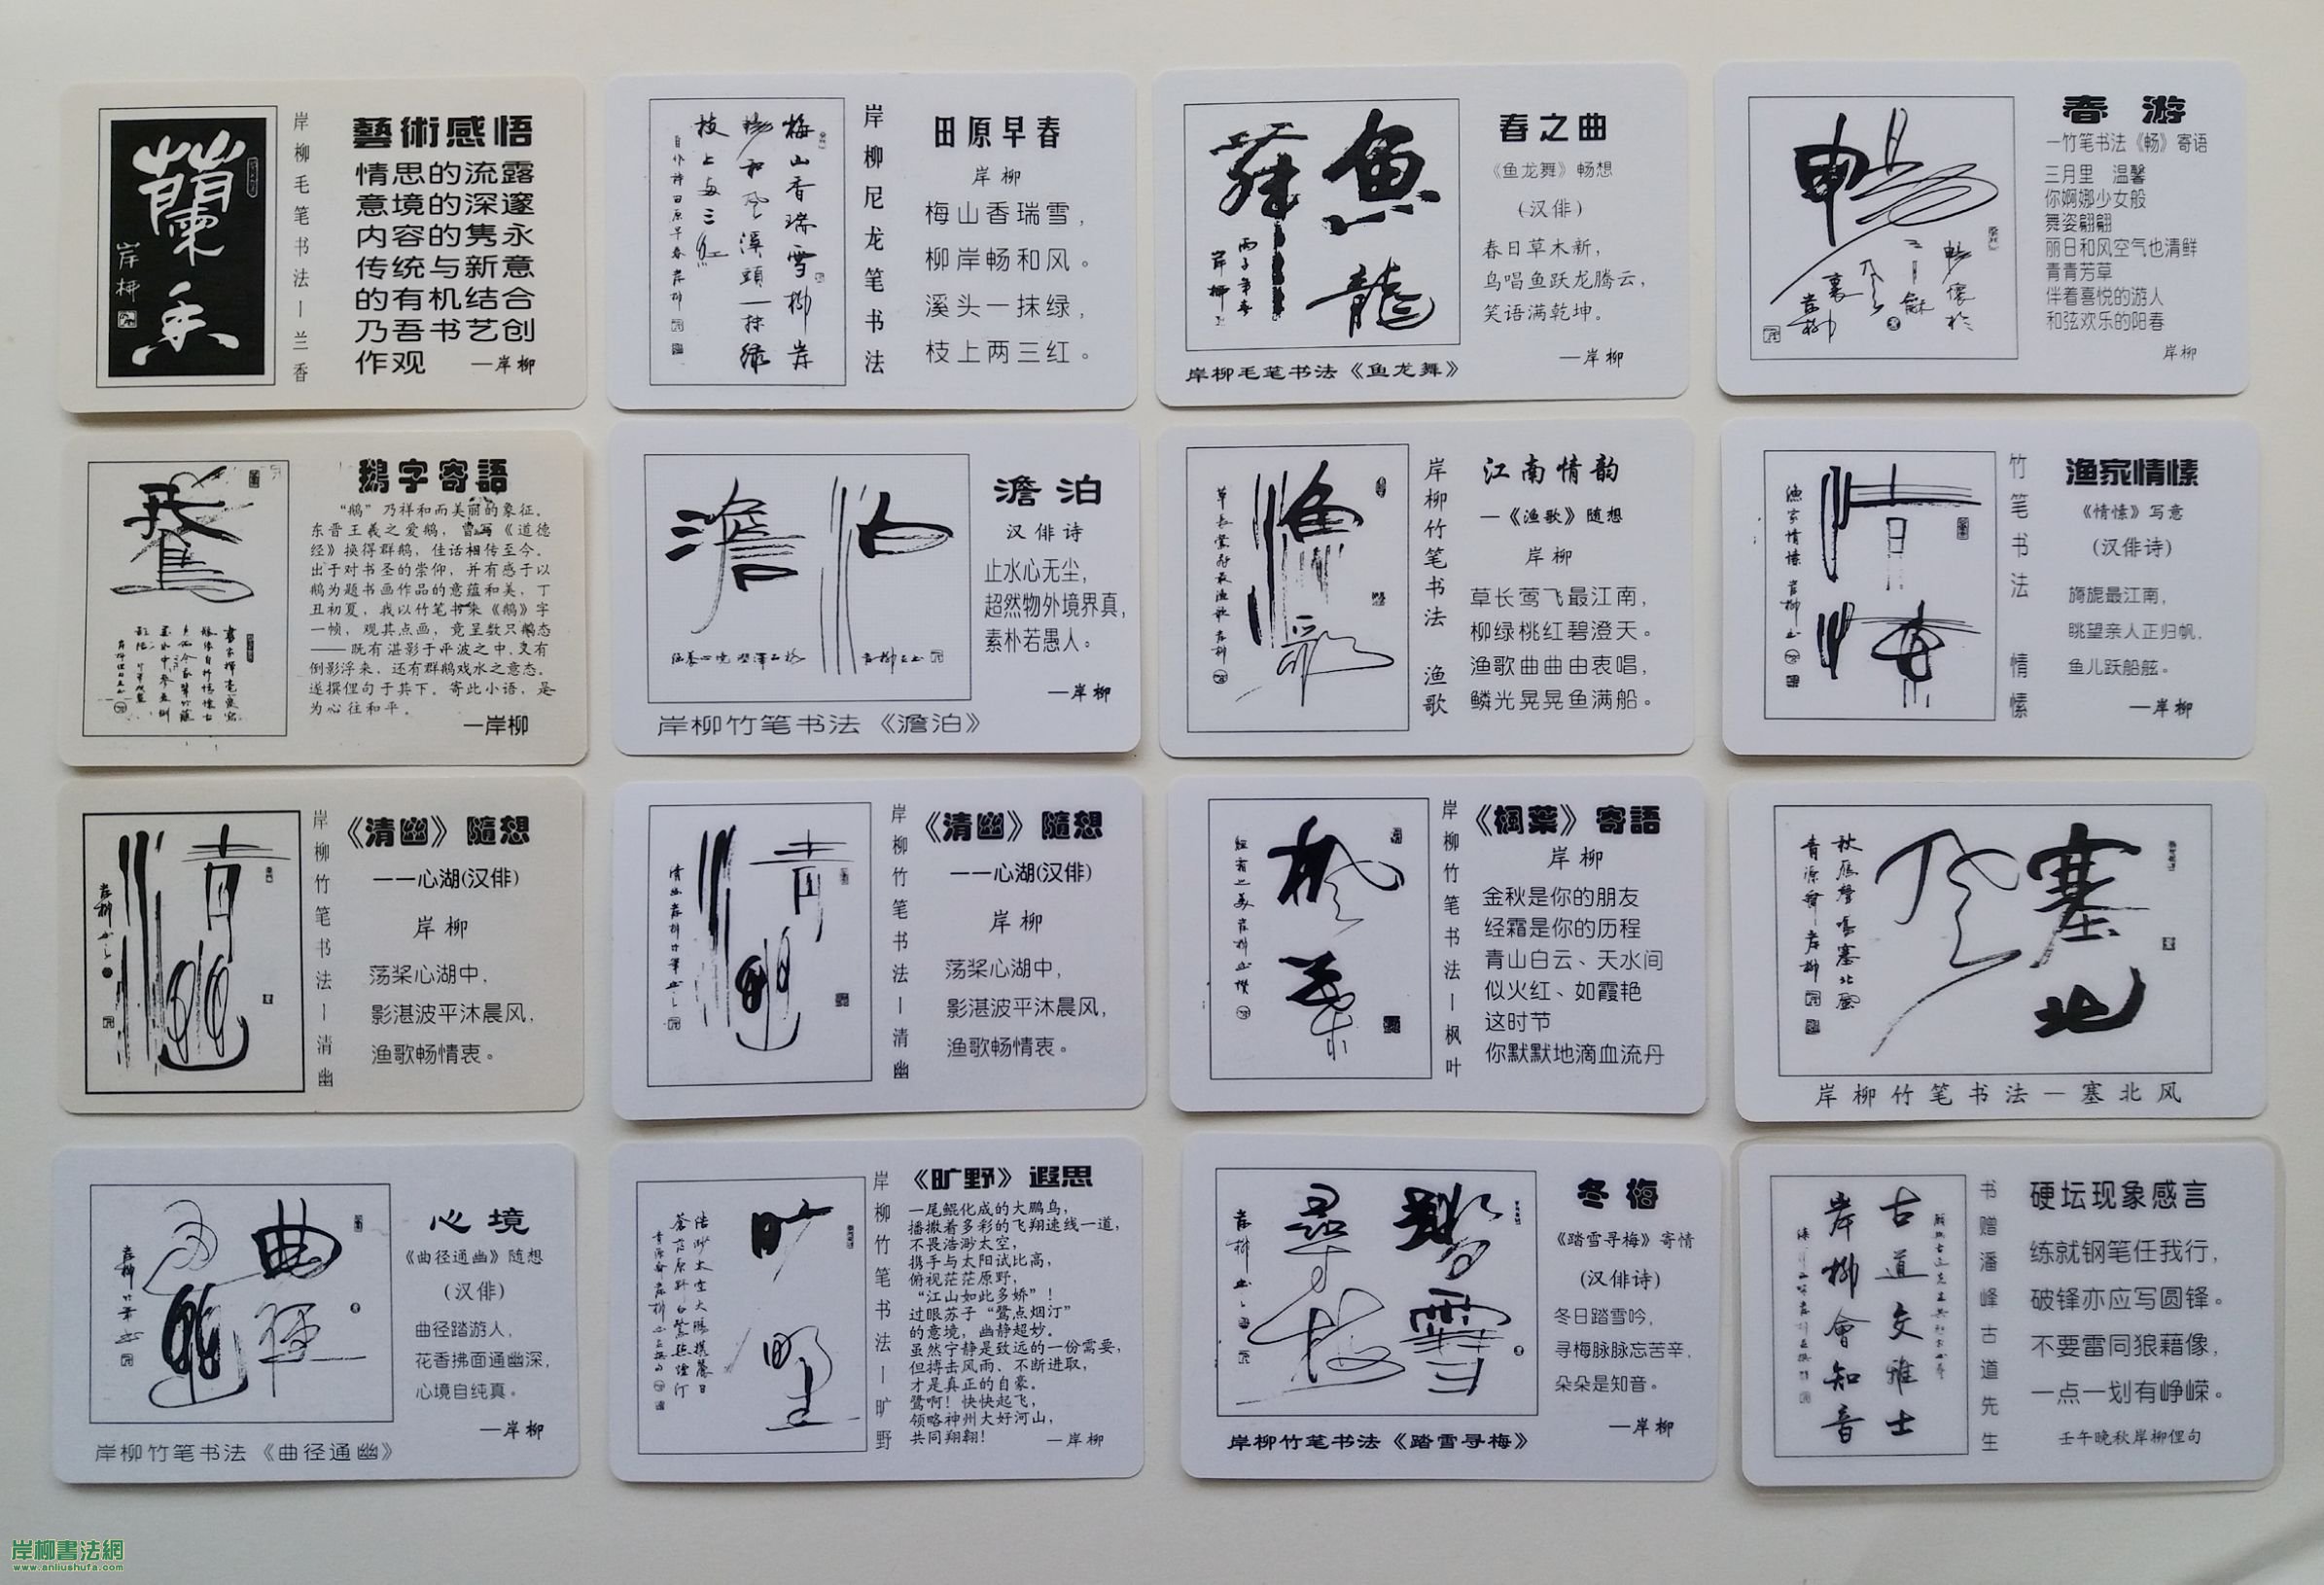 蘭香
岸柳
岸柳毛笔书法—兰香
藝術感悟
情思的流露
意境的深邃
内容的隽永
传统与新意
的有机结合
乃吾书艺创
作观 —岸柳
梅山香瑞雪柳岸
畅和风溪頭一抹綠
枝上两三紅
自作诗田原早春岸柳
岸柳尼龙笔书法
田原早春
岸柳
梅山香瑞雪，
柳岸畅和风。
溪头一抹绿，
枝上两三红。
魚龍
舞
岸柳毛笔书法《鱼龙舞》
春之曲
《鱼龙舞》畅想
(汉俳)
春日草木新，
鸟唱鱼跃龙腾云，
笑语满乾坤。
—岸柳
暢
春游
—竹笔书法《畅》寄语
三月里 温馨
你婀娜少女般
舞姿翩翩
丽日和风空气也清鲜
青青芳草
伴着喜悦的游人
和弦欢乐的阳春
岸柳
鵞
鹅字寄語
“鹅”乃祥和而美丽的象征。
东晋王羲之爱鹅，曾写《道德
经》换得群鹅，佳话相传至今。
出于对书圣的崇仰，并有感于以
鹅为题书画作品的意蕴和美，丁
丑初夏，我以竹笔书来《鹅》字
一帧，观其点画，竟呈数只鹅态
——既有湛影于平波之中，又有
倒影浮来，还有群鹅戏水之意态。
遂撰俚句于其下。寄此小语，是
为心往和平。
—岸柳
澹泊
岸柳竹笔书法《澹泊》
澹泊
汉俳诗
止水心无尘，
超然物外境界真，
素朴若愚人。
—岸柳
漁歌
岸柳竹笔书法 渔歌
江南情韵
—《渔歌》随想
岸柳
草长莺飞最江南，
柳绿桃红碧澄天。
渔歌曲曲由衷唱，
鳞光晃晃鱼满船。
情愫
渔家情愫 岸柳
竹笔书法 情愫
渔家情愫
《情愫》写意
(汉俳诗)
旖旎最江南，
眺望亲人正归帆，
鱼儿跃船舷。
—岸柳
清幽
岸柳竹笔书法—清幽
《清幽》隨想
——心湖(汉俳)
岸柳
荡桨心湖中，
影湛波平沐晨风，
渔歌畅情衷。
清幽
岸柳竹笔书法—清幽
《清幽》隨想
——心湖(汉俳)
岸柳
荡桨心湖中，
影湛波平沐晨风，
渔歌畅情衷。
楓葉
岸柳竹笔书法—枫叶
《楓葉》寄語
岸柳
金秋是你的朋友
经霜是你的历程
青山白云、天水间
似火红、如霞艳
这时节
你默默地滴血流丹
塞北
风
秋雁聲鳴塞北風
岸柳竹笔书法—塞北风
曲徑
通幽
岸柳竹笔书法《曲径通幽》
心境
《曲径通幽》随想
(汉俳)
曲径踏游人，
花香拂面通幽深，
心境自纯真。
—岸柳
旷野
浩渺太空大鵬携馨日
岸柳竹笔书法—旷野
《旷野》遐思
一尾鲲化成的大鹏鸟，
播撒着多彩的飞翔速线一道，
不畏浩渺太空，
携手与太阳试比高，
俯视茫茫原野，
“江山如此多娇”！
过眼苏子“鹭点烟汀”
的意境，幽静超妙。
虽然宁静是致远的一份需要，
但搏击风雨、不断进取，
才是真正的自豪。
鹭啊！快快起飞，
领略神州大好河山，
共同翔翱！ —岸柳
踏雪
尋梅
岸柳竹笔书法《踏雪寻梅》
冬梅
《踏雪寻梅》寄情
(汉俳诗)
冬日踏雪吟，
寻梅脉脉忘苦辛，
朵朵是知音。
—岸柳
古道交雅士
岸柳會知音
书赠潘峰古道先生
硬坛现象感言
练就钢笔任我行，
破锋亦应写圆锋。
不要雷同狼藉像，
一点一划有峥嵘。
壬午晚秋岸柳俚句
岸柳書法網
www.anliushufa.com